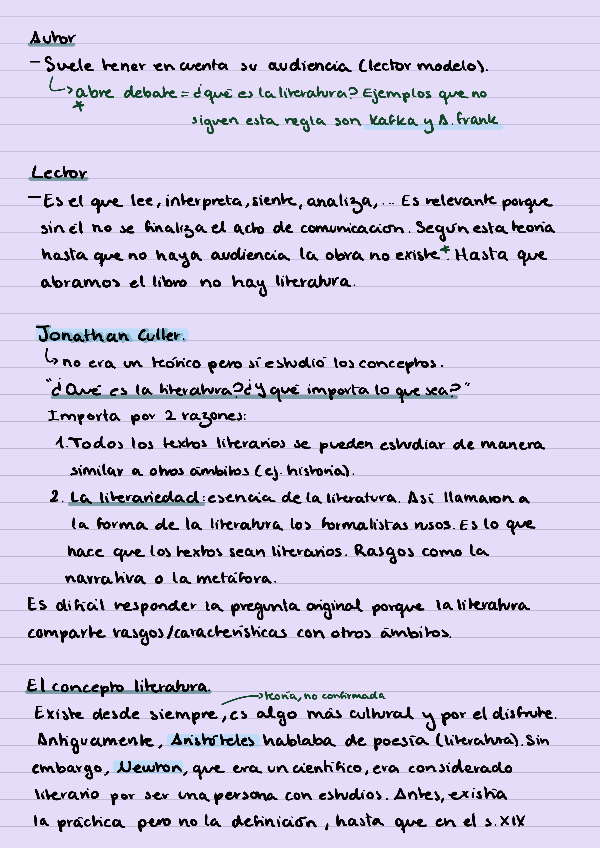 Autor
- Suele tener en cuenta su audiencia (lector modelo).
↳ abre debate = ¿qué es la literatura? Ejemplos que no
*
siguen esta regla son Kafka y A. Frank
Lector
- Es el que lee, interpreta, siente, analiza,... Es relevante porque
sin él no se finaliza el acto de comunicación. Según esta teoría
hasta que no haya audiencia la obra no existe*. Hasta que
abramos el libro no hay literatura.
Jonathan Culler.
↳ no era un teórico pero sí estudió los conceptos.
"¿Qué es la literatura? ¿Y qué importa lo que sea?"
Importa por 2 razones:
1. Todos los textos literarios se pueden estudiar de manera
similar a otros ámbitos (ej. historia).
2. La literariedad: esencia de la literatura. Así llamaron a
la forma de la literatura los formalistas rusos. Es lo que
hace que los textos sean literarios. Rasgos como la
narrativa o la metáfora.
Es difícil responder la pregunta original porque la literatura
comparte rasgos/características con otros ámbitos.
El concepto literatura.
→ teoría, no confirmada
Existe desde siempre, es algo más cultural y por el disfrute.
Antiguamente, Aristóteles hablaba de poesía (literatura). Sin
embargo, Newton, que era un científico, era considerado
literario por ser una persona con estudios. Antes, existía
la práctica pero no la definición, hasta que en el s. XIX